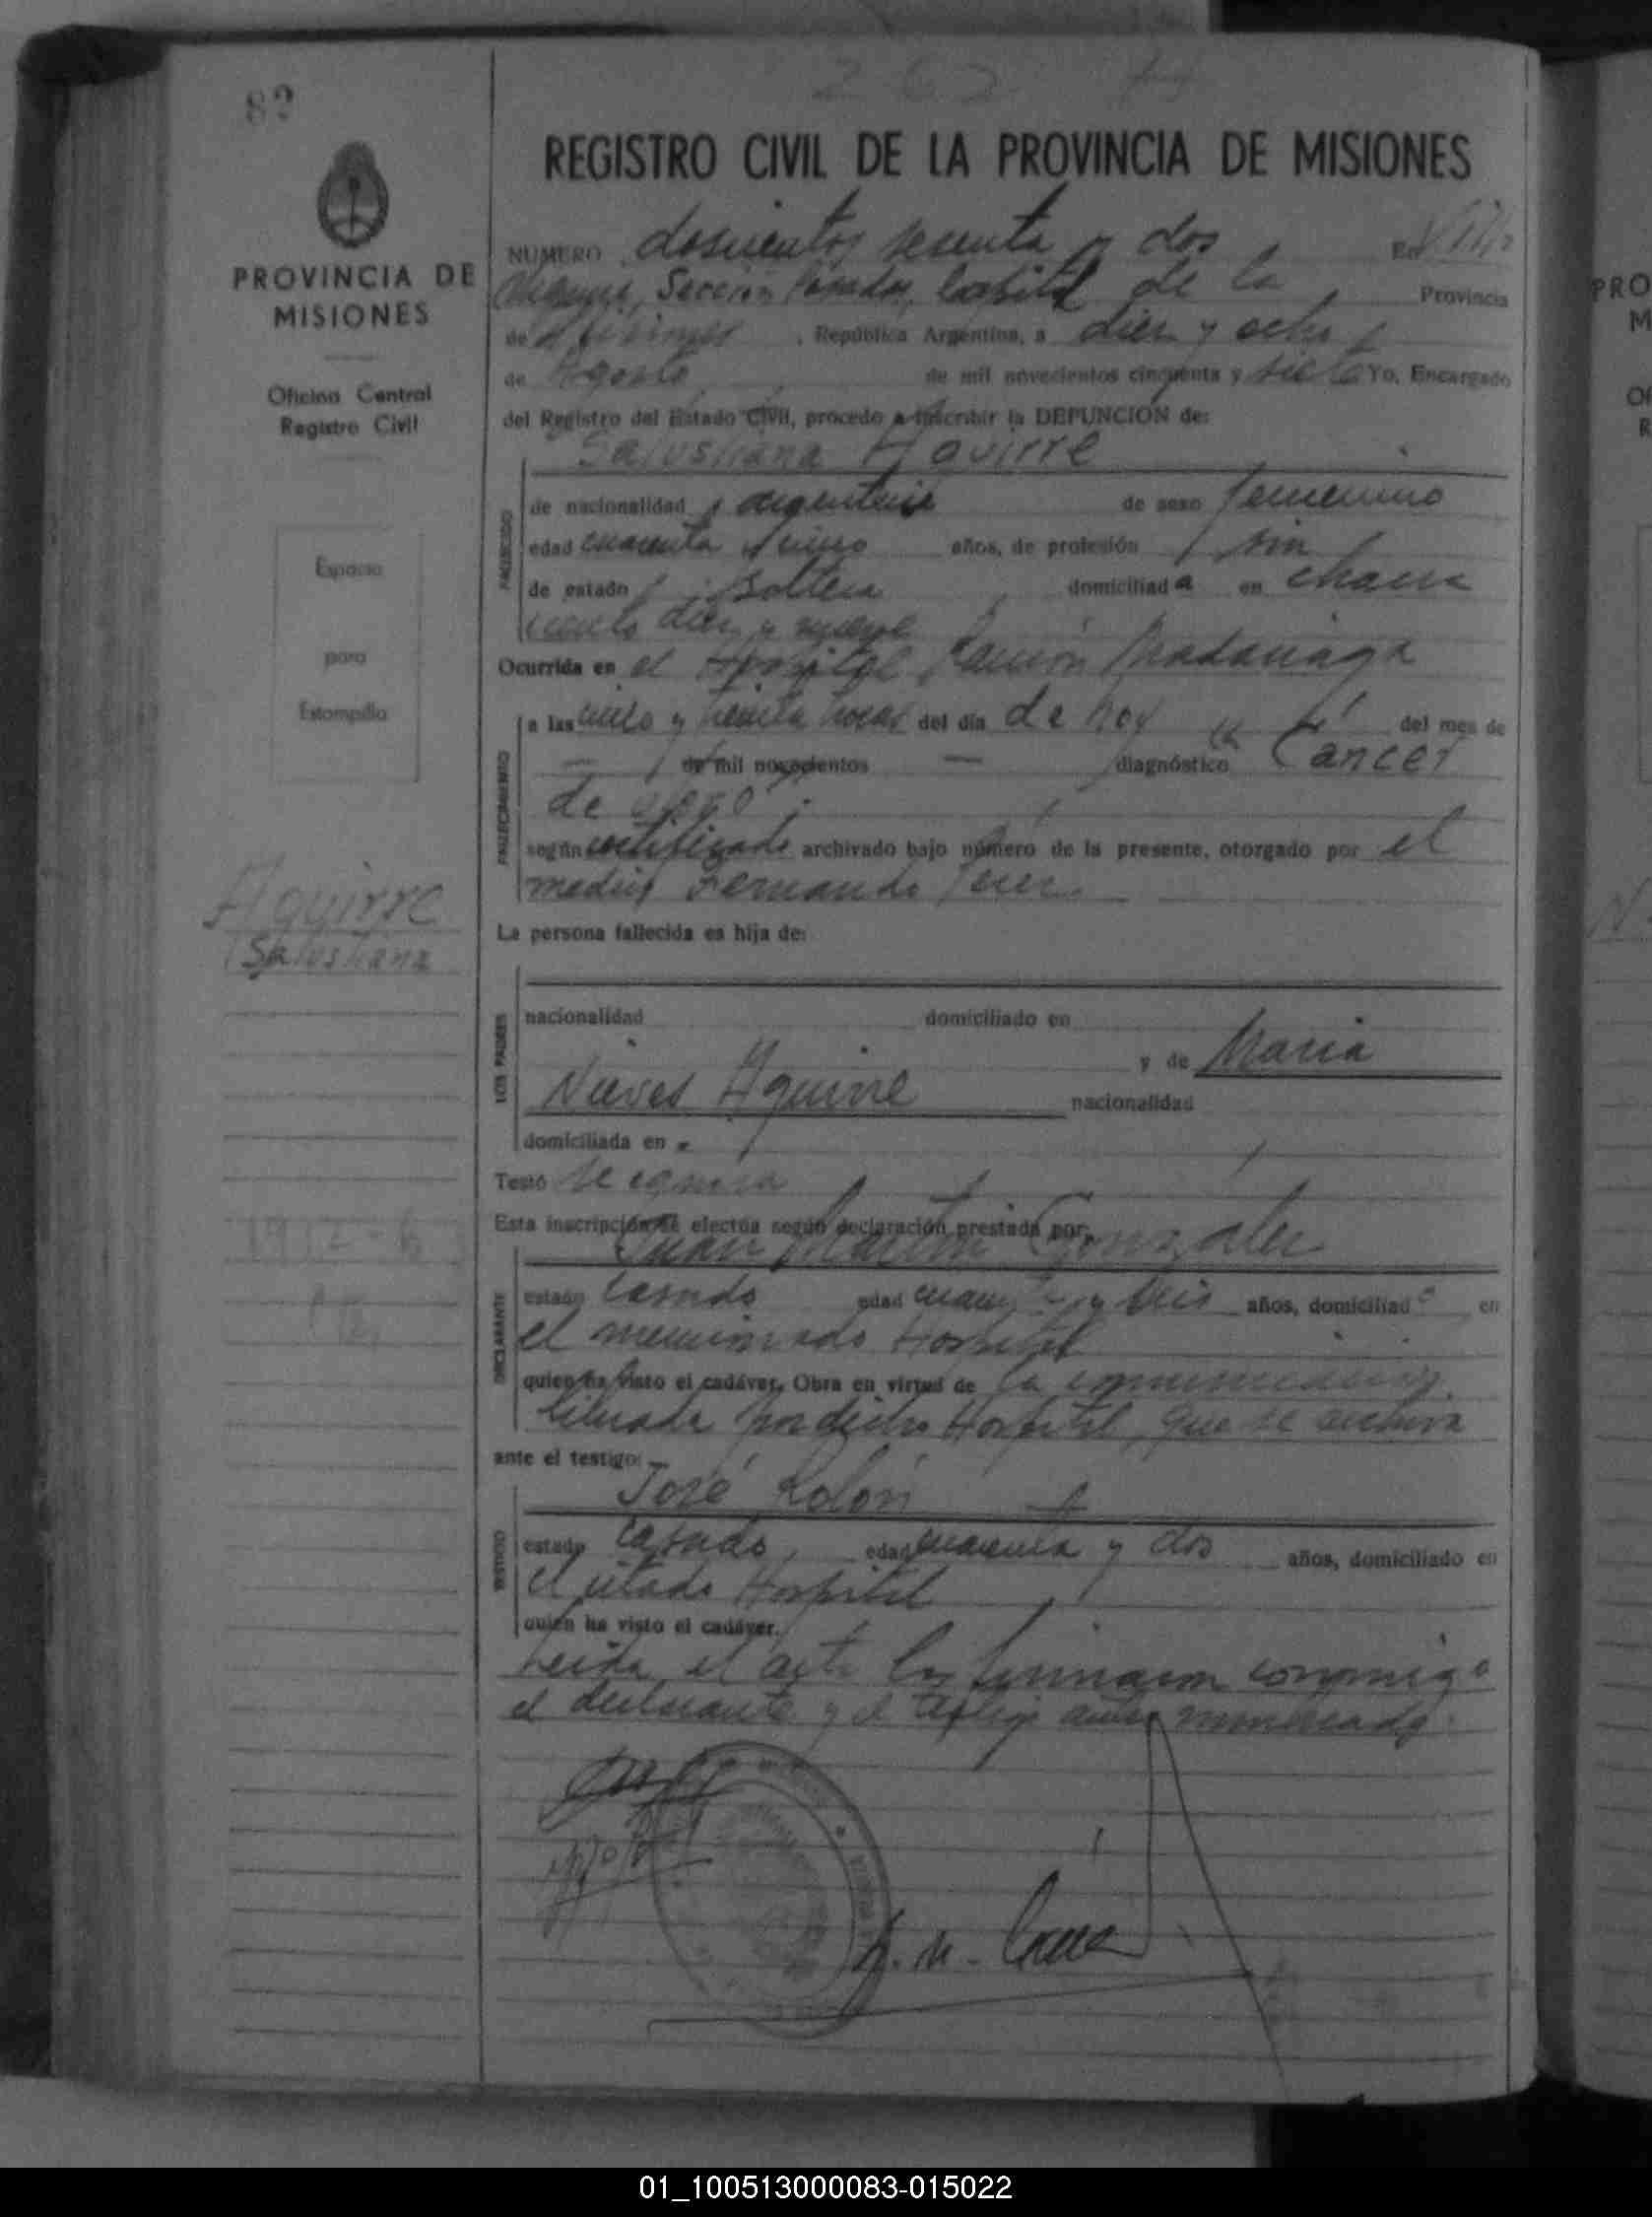 82
262
REGISTRO CIVIL DE LA PROVINCIA DE MISIONES
PROVINCIA DE
MISIONES
Oficina Central
Registro Civil
Espacio
para
Estampilla
Aguirre
Salustiana
NUMERO doscientos sesenta y dos En Villa
Sección Posadas, Capital de la Provincia
de Misiones, República Argentina, a diez y ocho
de Agosto de mil novecientos cincuenta y siete Yo, Encargado
del Registro del Estado Civil, procedo a inscribir la DEFUNCION de:
Salustiana Aguirre
FALLECIDO
de nacionalidad argentina de sexo femenino
edad cuarenta años, de profesión sin
de estado soltera domiciliada en chacra
ciento diez y nueve
Ocurrida en el Hospital Ramón Madariaga
FALLECIMIENTO
a las cinco y treinta horas del día de hoy del mes de
— de mil novecientos — diagnóstico Cancer
de
según certificado archivado bajo número de la presente, otorgado por el
medico Fernando
La persona fallecida es hija de:
LOS PADRES
nacionalidad domiciliado en
y de Maria
Nieves Aguirre nacionalidad
domiciliada en
Testó se ignora
Esta inscripción se efectúa según declaración prestada por:
Juan Martin Gonzalez
DECLARANTE
estado casado edad cuarenta y seis años, domiciliado en
el mencionado Hospital
quien ha visto el cadáver. Obra en virtud de la comunicación
librada por dicho Hospital, que se archiva
ante el testigo:
José Rolón
TESTIGO
estado casado, edad cuarenta y dos años, domiciliado en
el citado Hospital
quien ha visto el cadáver.
Leida el acta la firmaron conmigo
el declarante y el testigo antes mencionado
01_100513000083-015022